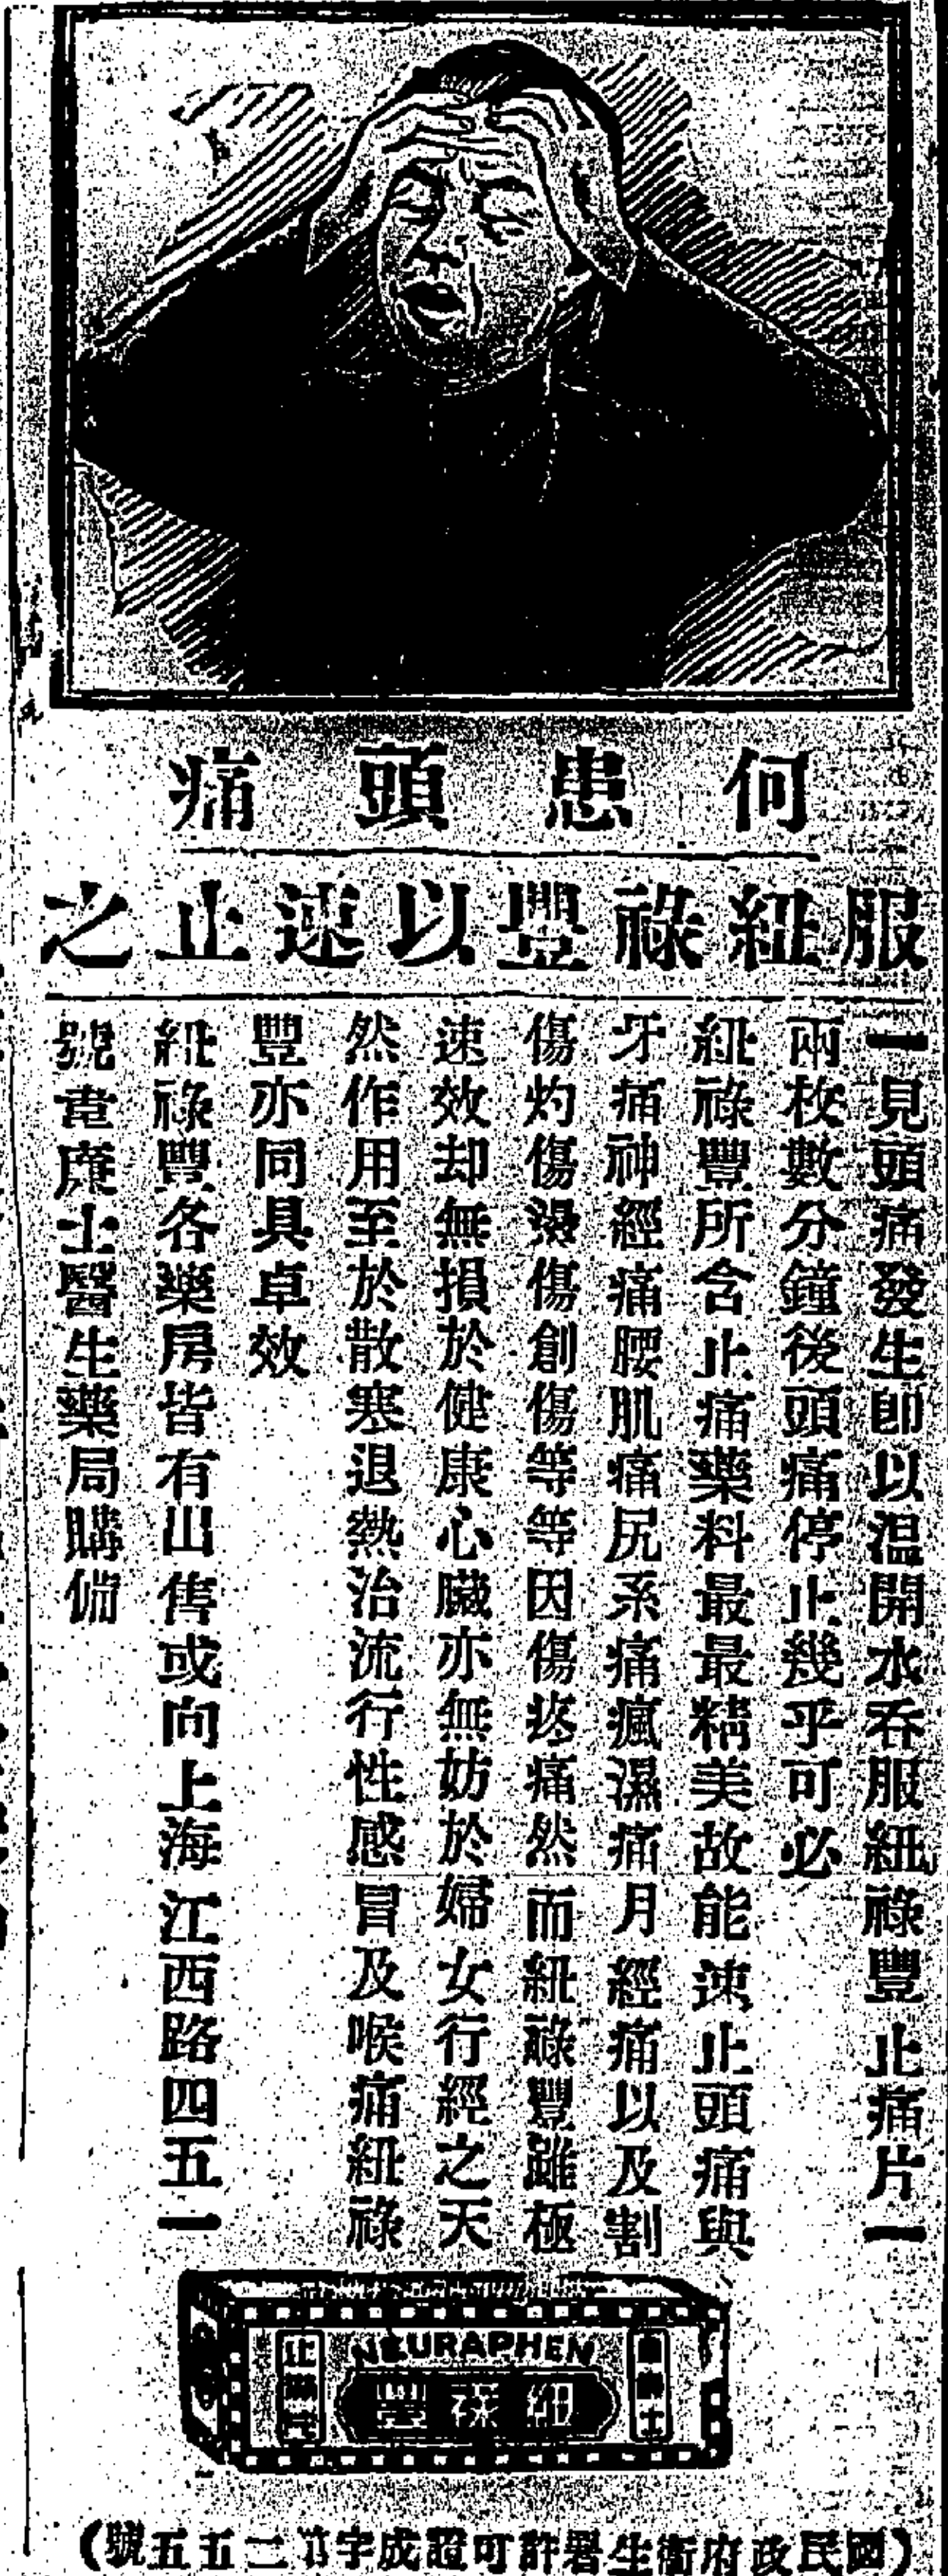 何患頭痛
服紐祿豐以速止之
一見頭痛發生卽以温開水吞服紐祿豐止痛片一
兩枚數分鐘後頭痛停止幾乎可必
紐祿豐所含止痛藥料最最精美故能速止頭痛與
牙痛神經痛腰肌痛尻系痛瘋濕痛月經痛以及割
傷灼傷燙傷創傷等等因傷疼痛然而紐祿豐雖極
速效却無損於健康心臟亦無妨於婦女行經之天
然作用至於散寒退熱治流行性感冒及喉痛紐祿
豐亦同具卓效
紐祿豐各藥房皆有出售或向上海江西路四五一
號韋廉士醫生藥局購備
NEURAPHEN
紐祿豐
止痛片
(國民政府衞生署許可證成字第二五五號)